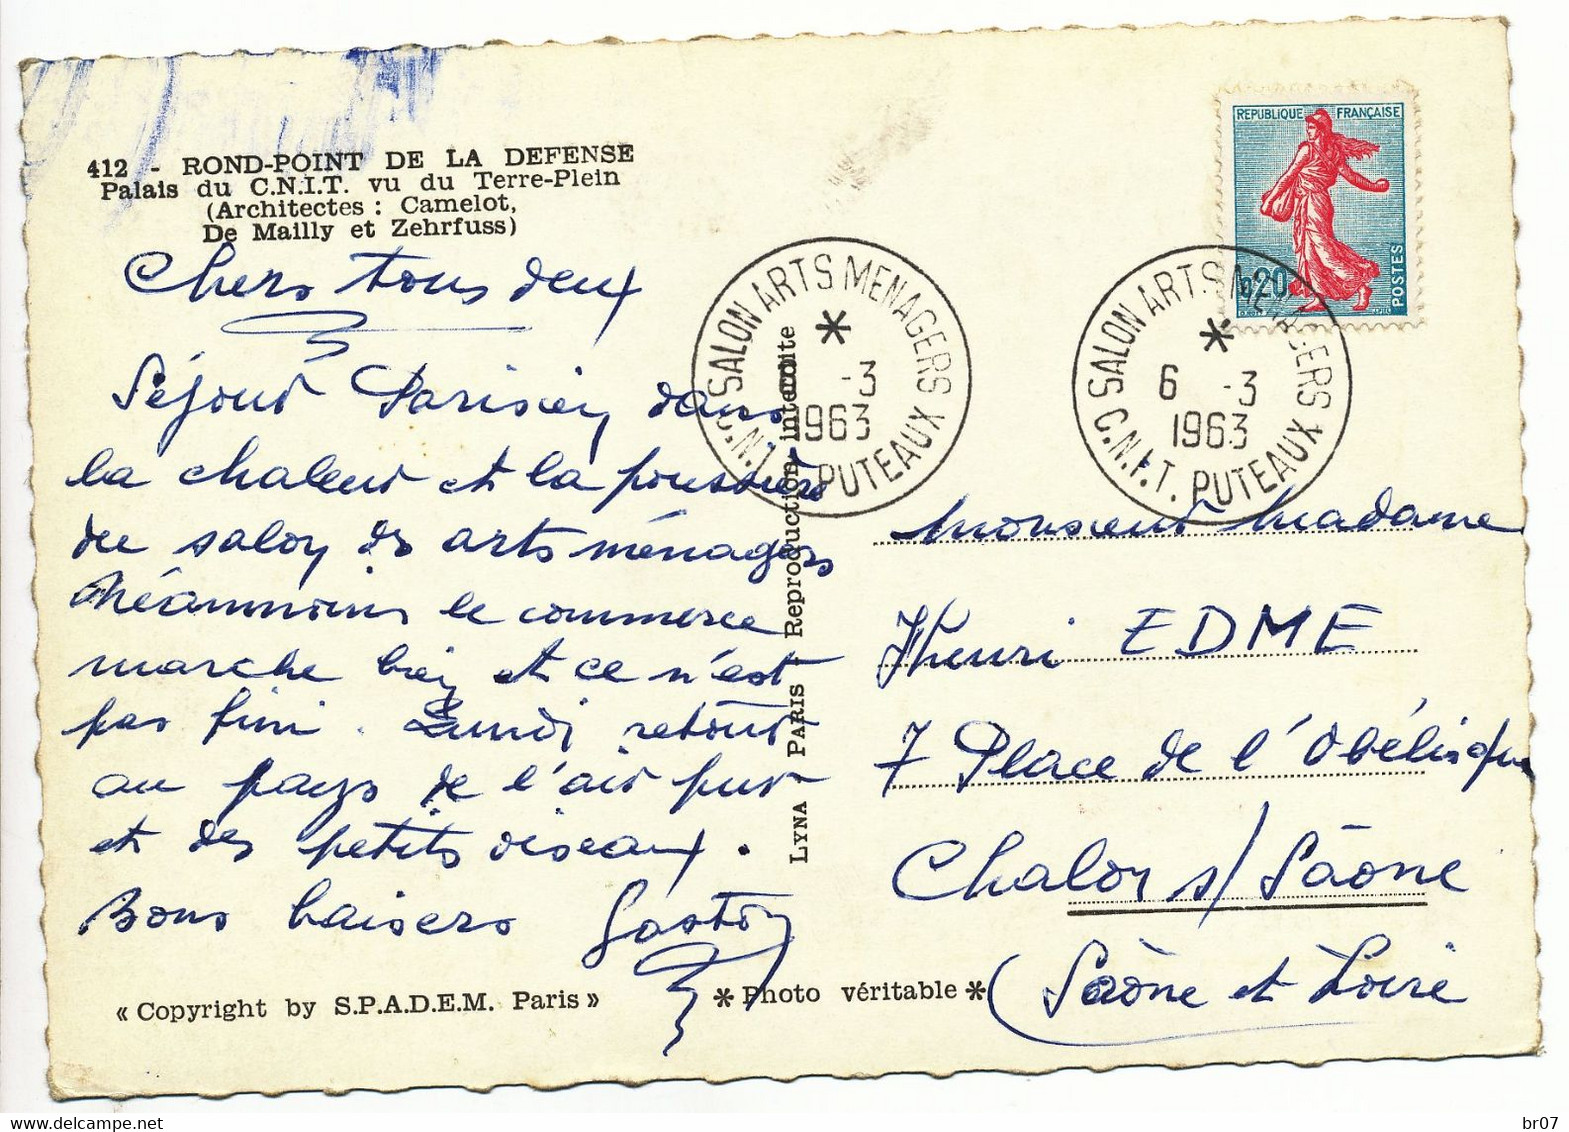 412 - ROND-POINT DE LA DEFENSE
Palais du C.N.I.T. vu du Terre-Plein
(Architectes : Camelot,
De Mailly et Zehrfuss)
Chers tous deux
Séjour Parisien dans
la chaleur et la poussière
du salon des arts ménagers
Néanmoins le commerce
marche bien et ce n'est
pas fini. Lundi retour
au pays de l'air pur
et des petits oiseaux.
Bons baisers Gaston
« Copyright by S.P.A.D.E.M. Paris »
* Photo véritable *
LYNA PARIS Reproduction interdite
SALON ARTS MENAGERS
*
-3
1963
C.N.I.T. PUTEAUX
SALON ARTS MENAGERS
*
6 -3
1963
C.N.I.T. PUTEAUX
REPUBLIQUE FRANÇAISE
0,20
POSTES
Monsieur Madame
Henri EDME
7 Place de l'Obélisque
Chalon s/ Saône
(Saône et Loire
www.delcampe.net
br07